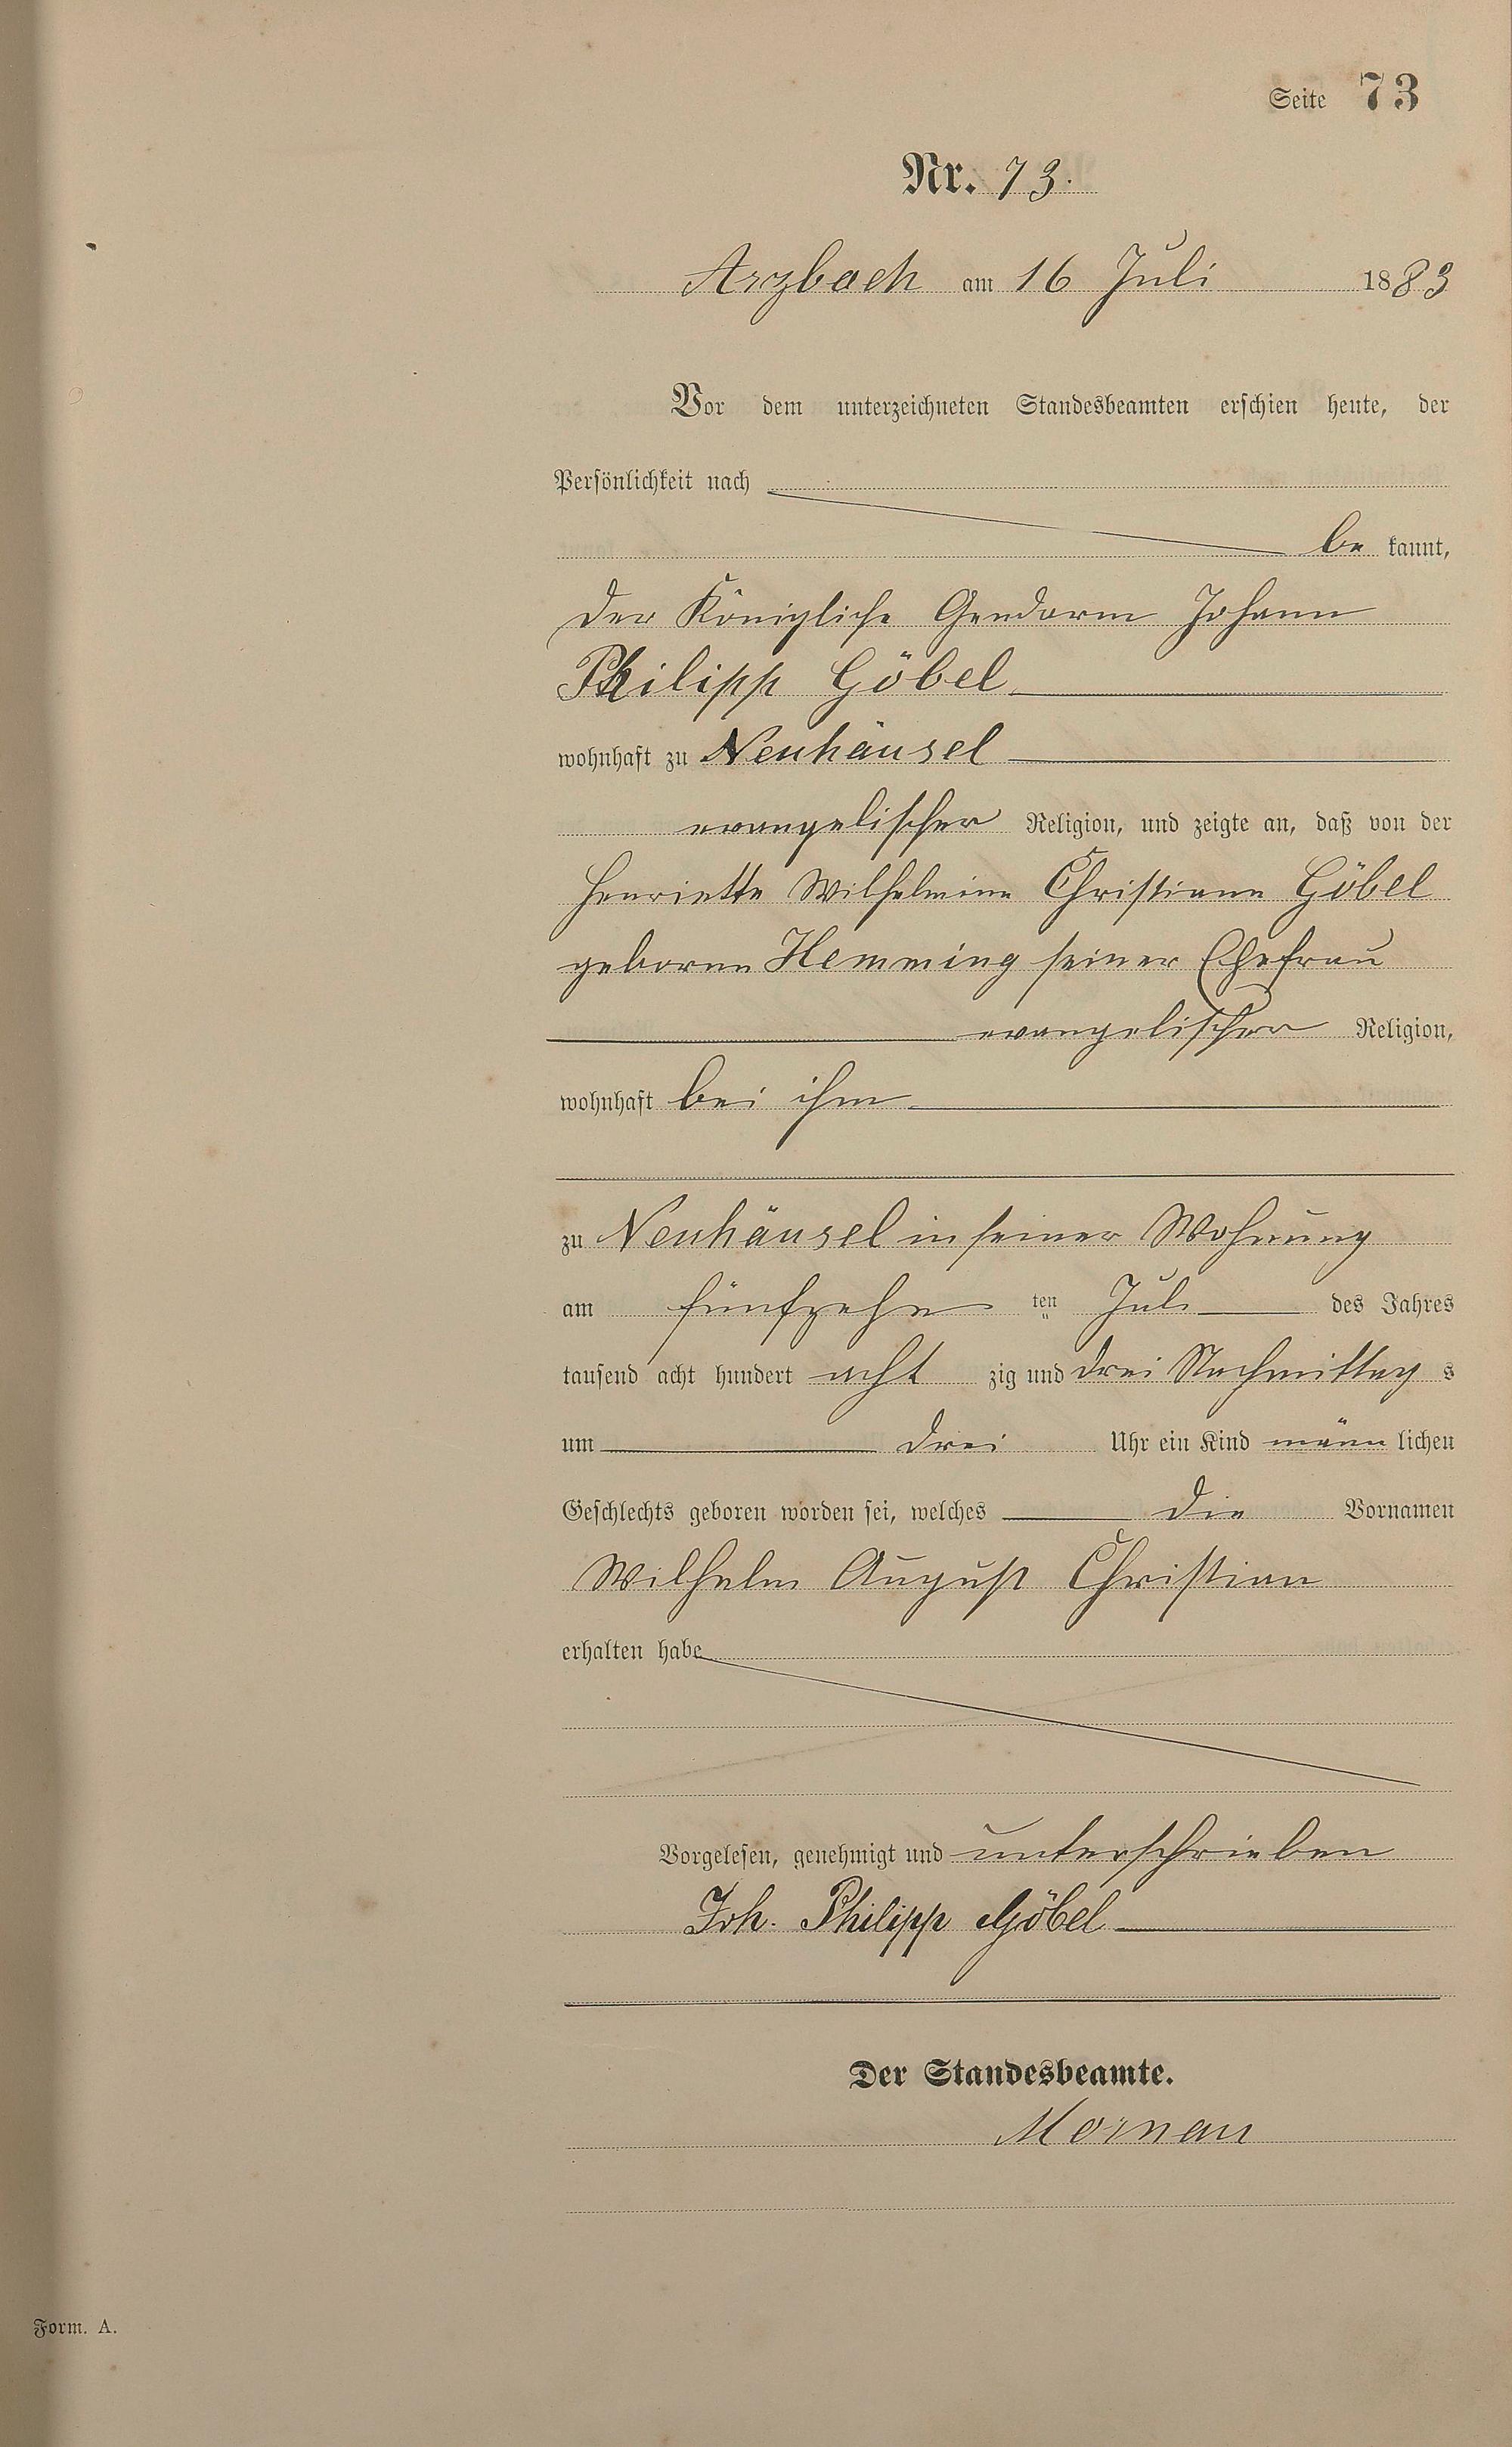 Seite 73
Nr. 73.
Arzbach am 16 Juli 1883
Vor dem unterzeichneten Standesbeamten erschien heute, der
Persönlichkeit nach
be kannt,
der Königliche Gendarm Johann
Philipp Göbel
wohnhaft zu Neuhäusel
evangelischer Religion, und zeigte an, daß von der
Henriette Wilhelmine Christiane Göbel
geborne Hemming seiner Ehefrau
evangelischer Religion,
wohnhaft bei ihm
zu Neuhäusel in seiner Wohnung
am fünfzehn ten Juli des Jahres
tausend acht hundert acht zig und drei Nachmittag s
um drei Uhr ein Kind männ lichen
Geschlechts geboren worden sei, welches die Vornamen
Wilhelm August Christian
erhalten habe
Vorgelesen, genehmigt und unterschrieben
Joh. Philipp Göbel
Der Standesbeamte.
Mornau
Form. A.